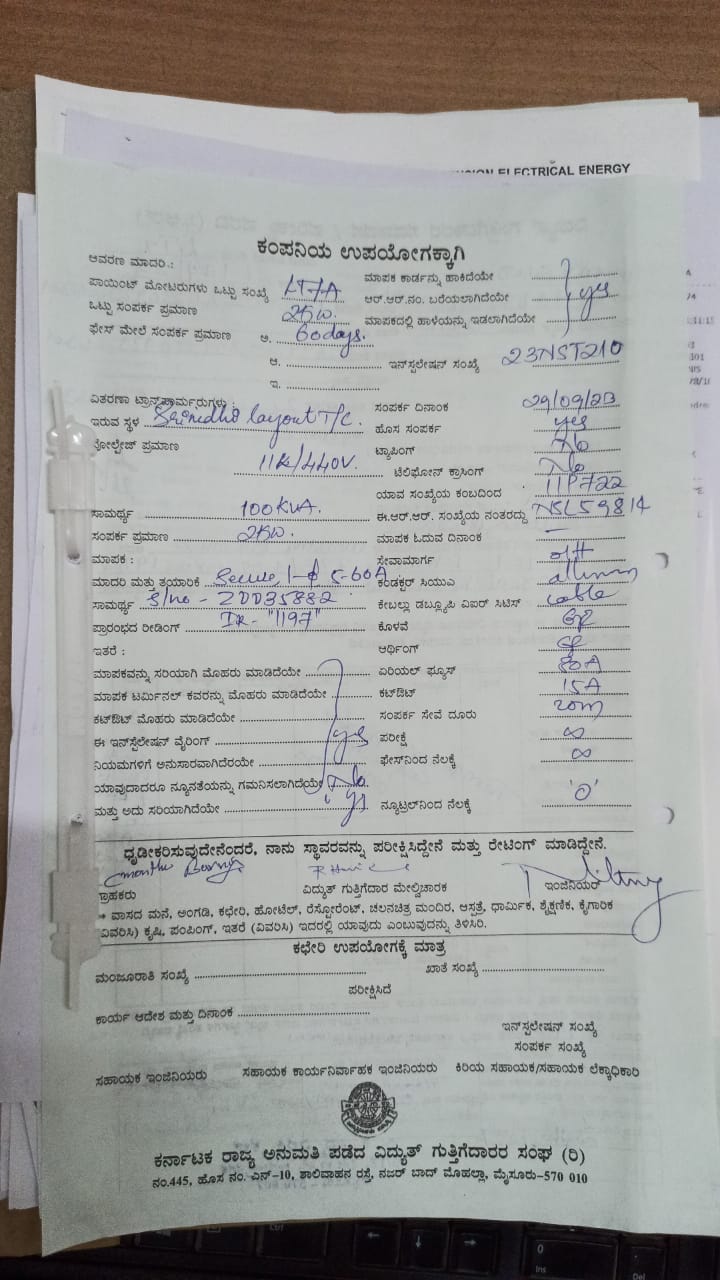 ELECTRICAL ENERGY
ಕಂಪನಿಯ ಉಪಯೋಗಕ್ಕಾಗಿ
ಆವರಣ ಮಾದರಿ.:
ಮಾಪಕ ಕಾರ್ಡನ್ನು ಹಾಕಿದೆಯೇ
ಪಾಯಿಂಟ್ ಮೋಟರುಗಳು ಒಟ್ಟು ಸಂಖ್ಯೆ
ಆರ್.ಆರ್.ನಂ. ಬರೆಯಲಾಗಿದೆಯೇ yes
ಒಟ್ಟು ಸಂಪರ್ಕ ಪ್ರಮಾಣ 2KW.
ಮಾಪಕದಲ್ಲಿ ಹಾಳೆಯನ್ನು ಇಡಲಾಗಿದೆಯೇ
ಫೇಸ್ ಮೇಲೆ ಸಂಪರ್ಕ ಪ್ರಮಾಣ ಅ. 60days.
ಆ. ಇನ್‌ಸ್ಟಲೇಷನ್ ಸಂಖ್ಯೆ 23NST210
ಇ.
ವಿತರಣಾ ಟ್ರಾನ್ಸ್‌ಫಾರ್ಮರುಗಳು : ಸಂಪರ್ಕ ದಿನಾಂಕ 29/09/23
ಇರುವ ಸ್ಥಳ Srinidhi layout T/C. ಹೊಸ ಸಂಪರ್ಕ yes
ವೋಲ್ಟೇಜ್ ಪ್ರಮಾಣ 11K/440V. ಟ್ಯಾಪಿಂಗ್ No
ಟೆಲಿಫೋನ್ ಕ್ರಾಸಿಂಗ್ No
ಯಾವ ಸಂಖ್ಯೆಯ ಕಂಬದಿಂದ 11P722
ಸಾಮರ್ಥ್ಯ 100KVA. ಈ.ಆರ್.ಆರ್. ಸಂಖ್ಯೆಯ ನಂತರದ್ದು NSL59814
ಸಂಪರ್ಕ ಪ್ರಮಾಣ 2KW. ಮಾಪಕ ಓದುವ ದಿನಾಂಕ —
ಮಾಪಕ : ಸೇವಾಮಾರ್ಗ o/H
ಮಾದರಿ ಮತ್ತು ತಯಾರಿಕೆ Secure 1-ϕ 5-60A ಕಂಡಕ್ಟರ್ ಸಿಯುಎ
ಸಾಮರ್ಥ್ಯ S/no - ZDD35882 ಕೇಬಲ್ಲು ಡಬ್ಲ್ಯೂಪಿ ಎಐರ್ ಸಿಟಿಸ್ cable
ಪ್ರಾರಂಭದ ರೀಡಿಂಗ್ IR- "1197" ಕೊಳವೆ
ಇತರೆ : ಆರ್ಥಿಂಗ್
ಮಾಪಕವನ್ನು ಸರಿಯಾಗಿ ಮೊಹರು ಮಾಡಿದೆಯೇ ಏರಿಯಲ್ ಫ್ಯೂಸ್ 80A
ಮಾಪಕ ಟರ್ಮಿನಲ್ ಕವರನ್ನು ಮೊಹರು ಮಾಡಿದೆಯೇ ಕಟ್‌ಔಟ್ 15A
ಕಟ್‌ಔಟ್ ಮೊಹರು ಮಾಡಿದೆಯೇ ಸಂಪರ್ಕ ಸೇವೆ ದೂರು 20m
ಈ ಇನ್‌ಸ್ಟಲೇಷನ್ ವೈರಿಂಗ್ yes ಪರೀಕ್ಷೆ ∞
ನಿಯಮಗಳಿಗೆ ಅನುಸಾರವಾಗಿದೆರೆಯೇ ಫೇಸ್‌ನಿಂದ ನೆಲಕ್ಕೆ ∞
ಯಾವುದಾದರೂ ನ್ಯೂನತೆಯನ್ನು ಗಮನಿಸಲಾಗಿದೆಯೇ No.
ಮತ್ತು ಅದು ಸರಿಯಾಗಿದೆಯೇ ys ನ್ಯೂಟ್ರಲ್‌ನಿಂದ ನೆಲಕ್ಕೆ '0'
ಧೃಡೀಕರಿಸುವುದೇನೆಂದರೆ, ನಾನು ಸ್ಥಾವರವನ್ನು ಪರೀಕ್ಷಿಸಿದ್ದೇನೆ ಮತ್ತು ರೇಟಿಂಗ್ ಮಾಡಿದ್ದೇನೆ.
ಗ್ರಾಹಕರು ವಿದ್ಯುತ್ ಗುತ್ತಿಗೆದಾರ ಮೇಲ್ವಿಚಾರಕ ಇಂಜಿನಿಯರ್
* ವಾಸದ ಮನೆ, ಅಂಗಡಿ, ಕಛೇರಿ, ಹೋಟೆಲ್, ರೆಸ್ಟೋರೆಂಟ್, ಚಲನಚಿತ್ರ ಮಂದಿರ, ಆಸ್ಪತ್ರೆ, ಧಾರ್ಮಿಕ, ಶೈಕ್ಷಣಿಕ, ಕೈಗಾರಿಕ
(ವಿವರಿಸಿ) ಕೃಷಿ, ಪಂಪಿಂಗ್, ಇತರೆ (ವಿವರಿಸಿ) ಇದರಲ್ಲಿ ಯಾವುದು ಎಂಬುವುದನ್ನು ತಿಳಿಸಿರಿ.
ಕಛೇರಿ ಉಪಯೋಗಕ್ಕೆ ಮಾತ್ರ
ಮಂಜೂರಾತಿ ಸಂಖ್ಯೆ ಖಾತೆ ಸಂಖ್ಯೆ
ಪರೀಕ್ಷಿಸಿದೆ
ಕಾರ್ಯ ಆದೇಶ ಮತ್ತು ದಿನಾಂಕ
ಇನ್‌ಸ್ಟಲೇಷನ್ ಸಂಖ್ಯೆ
ಸಂಪರ್ಕ ಸಂಖ್ಯೆ
ಸಹಾಯಕ ಇಂಜಿನಿಯರು ಸಹಾಯಕ ಕಾರ್ಯನಿರ್ವಾಹಕ ಇಂಜಿನಿಯರು ಕಿರಿಯ ಸಹಾಯಕ/ಸಹಾಯಕ ಲೆಕ್ಕಾಧಿಕಾರಿ
ಕರ್ನಾಟಕ ರಾಜ್ಯ ಅನುಮತಿ ಪಡೆದ ವಿದ್ಯುತ್ ಗುತ್ತಿಗೆದಾರರ ಸಂಘ (ರಿ)
ನಂ.445, ಹೊಸ ನಂ. ಎನ್-10, ಶಾಲಿವಾಹನ ರಸ್ತೆ, ನಜರ್ ಬಾದ್ ಮೊಹಲ್ಲಾ, ಮೈಸೂರು-570 010